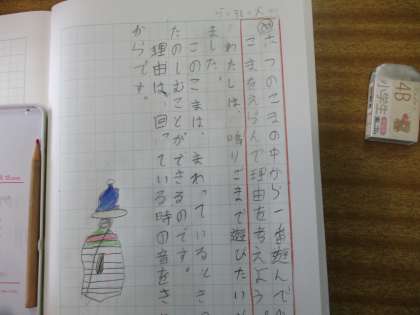 つのこまの中から一番遊んで
こまをえらんで理由を考えよう
わたしは、鳴りごまで遊びたい
ました。
このこまは、まわっているとき
たのしむことができるのです。
理由は、回っている時の音をき
からです。
4B
小学生